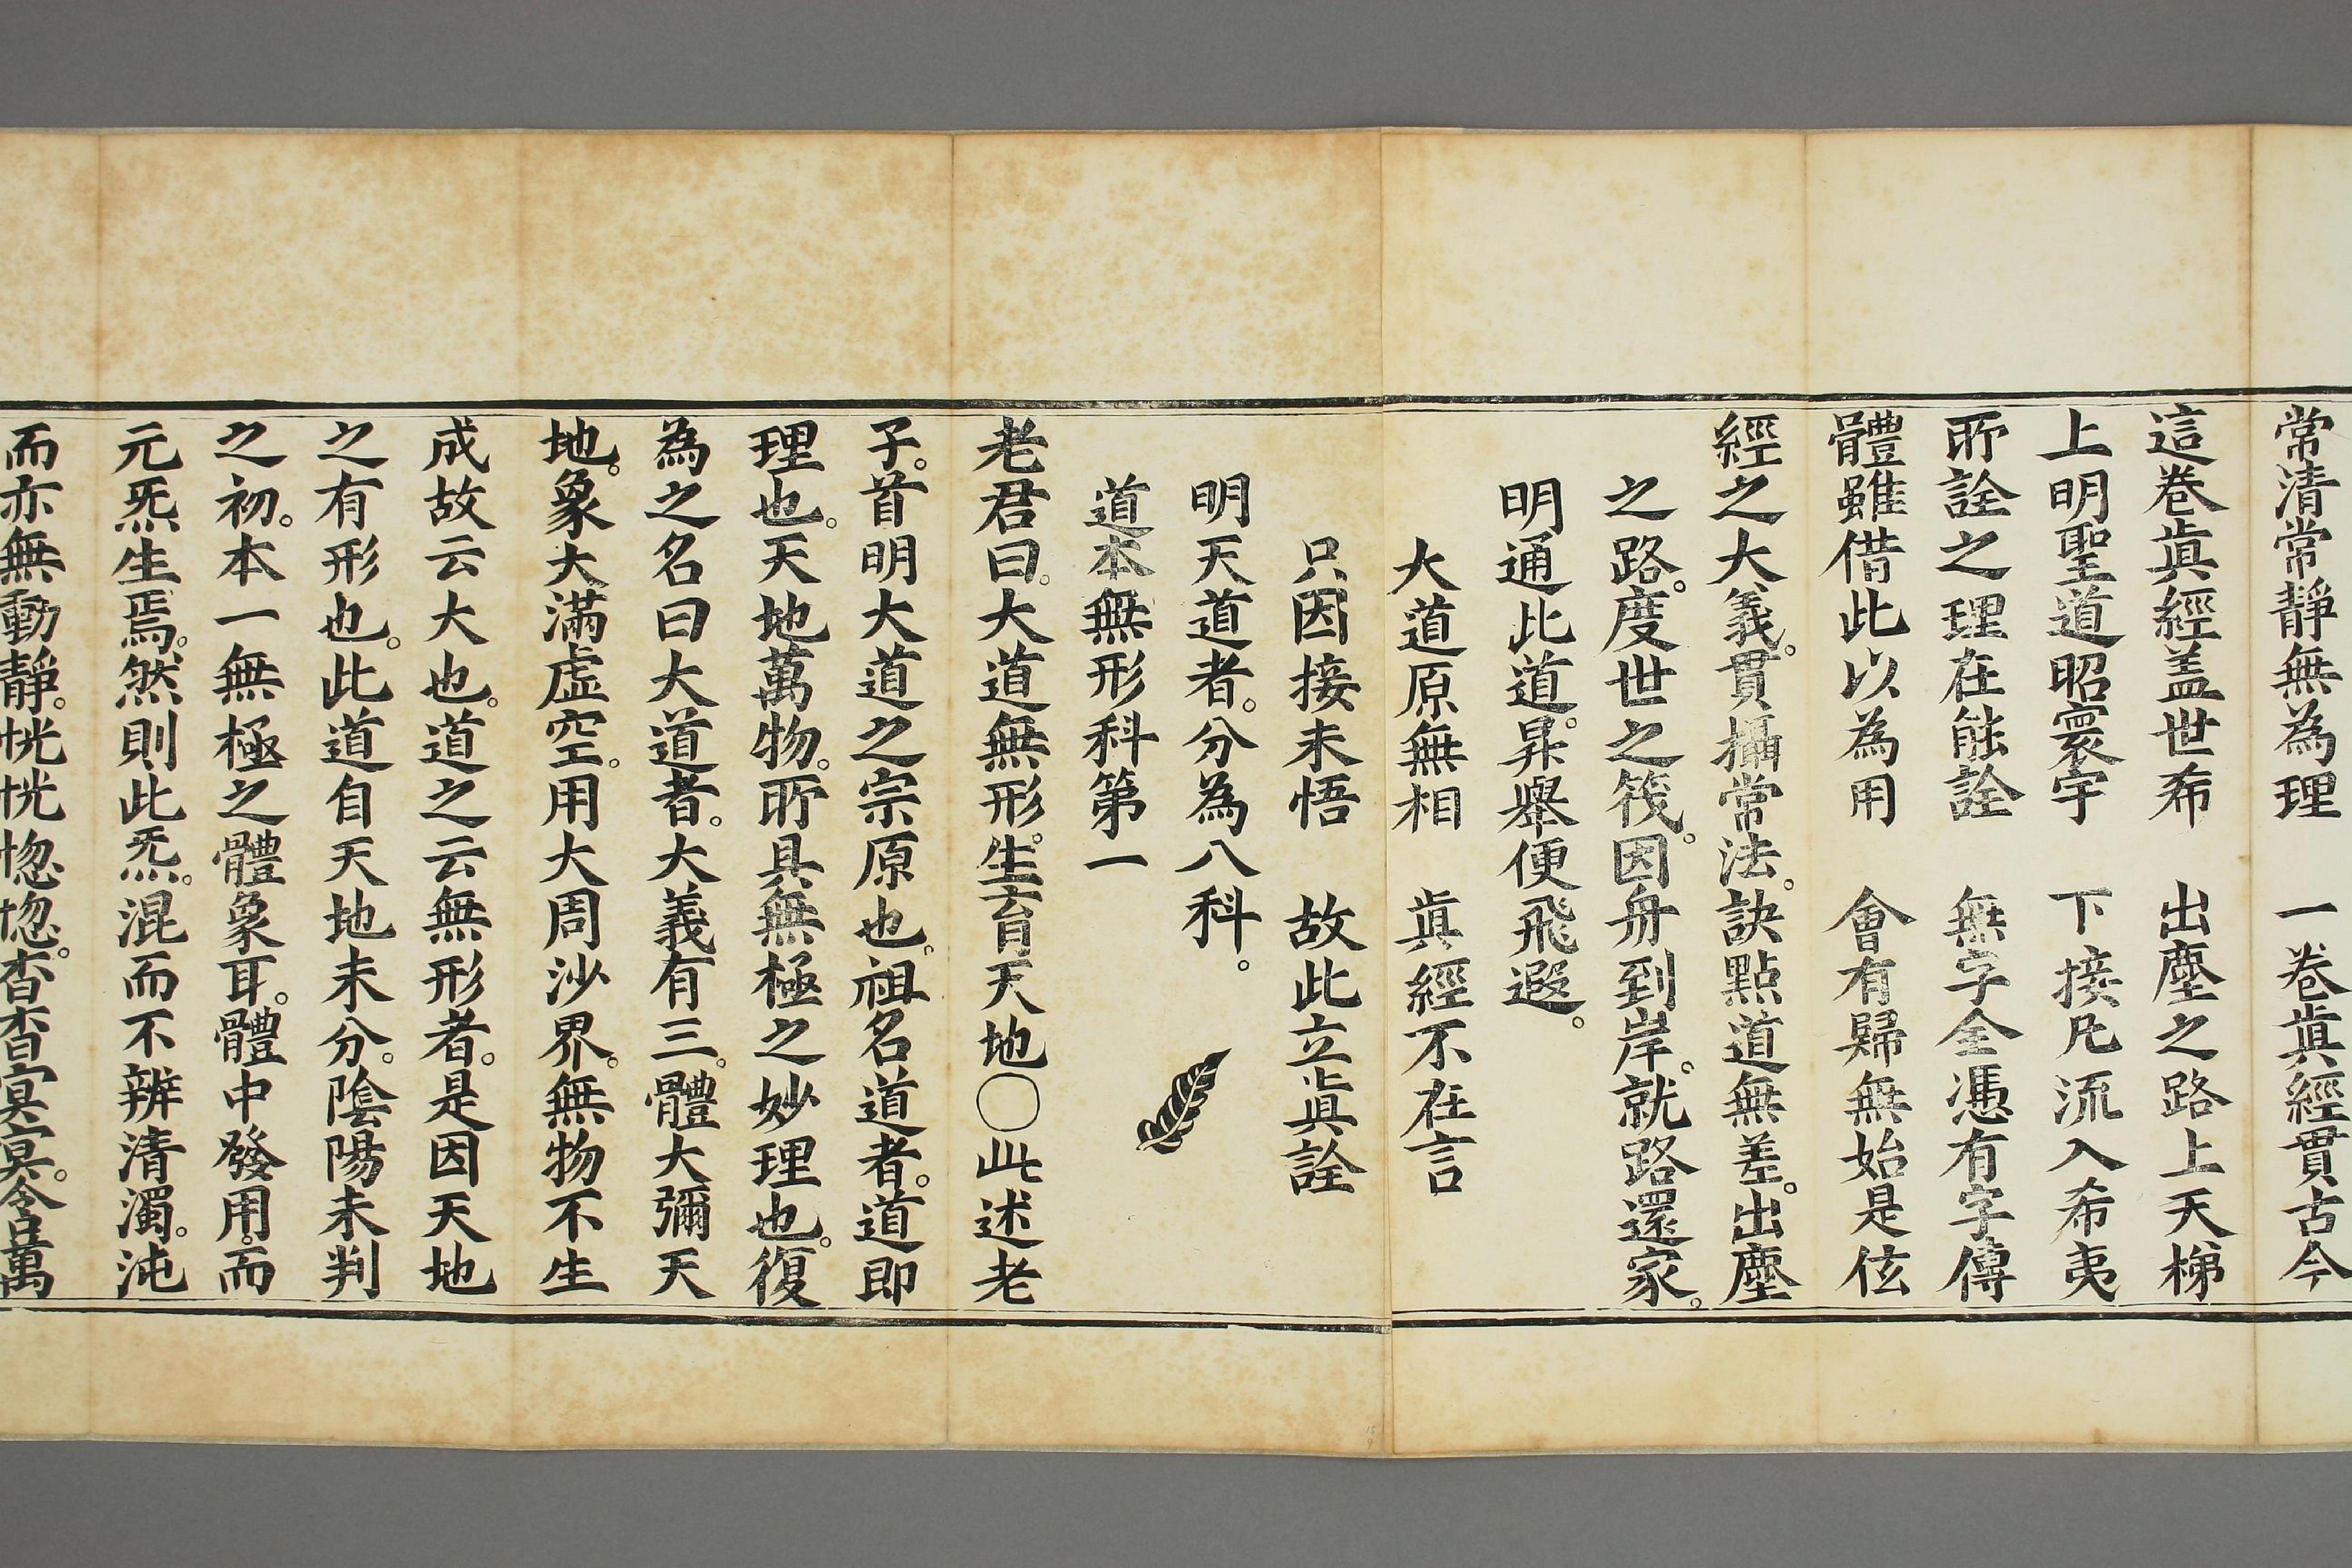 常清常靜無為理　一卷真經貫古今
這卷真經盖世希　出塵之路上天梯
上明聖道昭寰宇　下接凡流入希夷
所詮之理在能詮　無字全憑有字傳
體雖借此以為用　會有歸無始是伭
經之大義。貫攝常法。訣點道無差。出塵
之路。度世之筏。因舟到岸。就路還家。
明通此道。昇舉便飛遐。
大道原無相　真經不在言
只因接未悟　故此立真詮
明天道者。分為八科。
道本無形科第一
老君曰。大道無形。生育天地〇此述老
子。首明大道之宗原也。祖名道者。道即
理也。天地萬物。所具無極之妙理也。復
為之名曰大道者。大義有三。體大彌天
地。象大滿虛空。用大周沙界。無物不生
成故云大也。道之云無形者。是因天地
之有形也。此道自天地未分。陰陽未判
之初。本一無極之體象耳。體中發用。而
元炁生焉。然則此炁。混而不辨清濁。沌
而亦無動靜。恍恍惚惚。杳杳冥冥。含萬